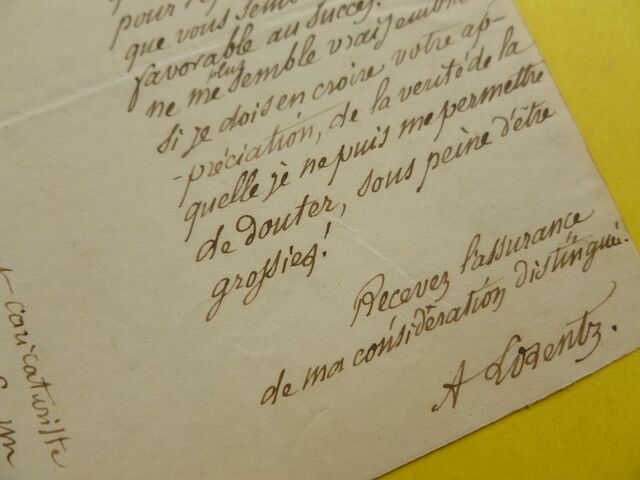 pour
que vous sem
favorable au succès.
ne me semble vraisembl
plus
si je dois en croire votre ap-
-préciation, de la verité de la
quelle je ne puis me permettre
de douter, sous peine d'être
grossier!
Recevez l'assurance
de ma considération distinguée.
A Lorentz.
caricaturiste